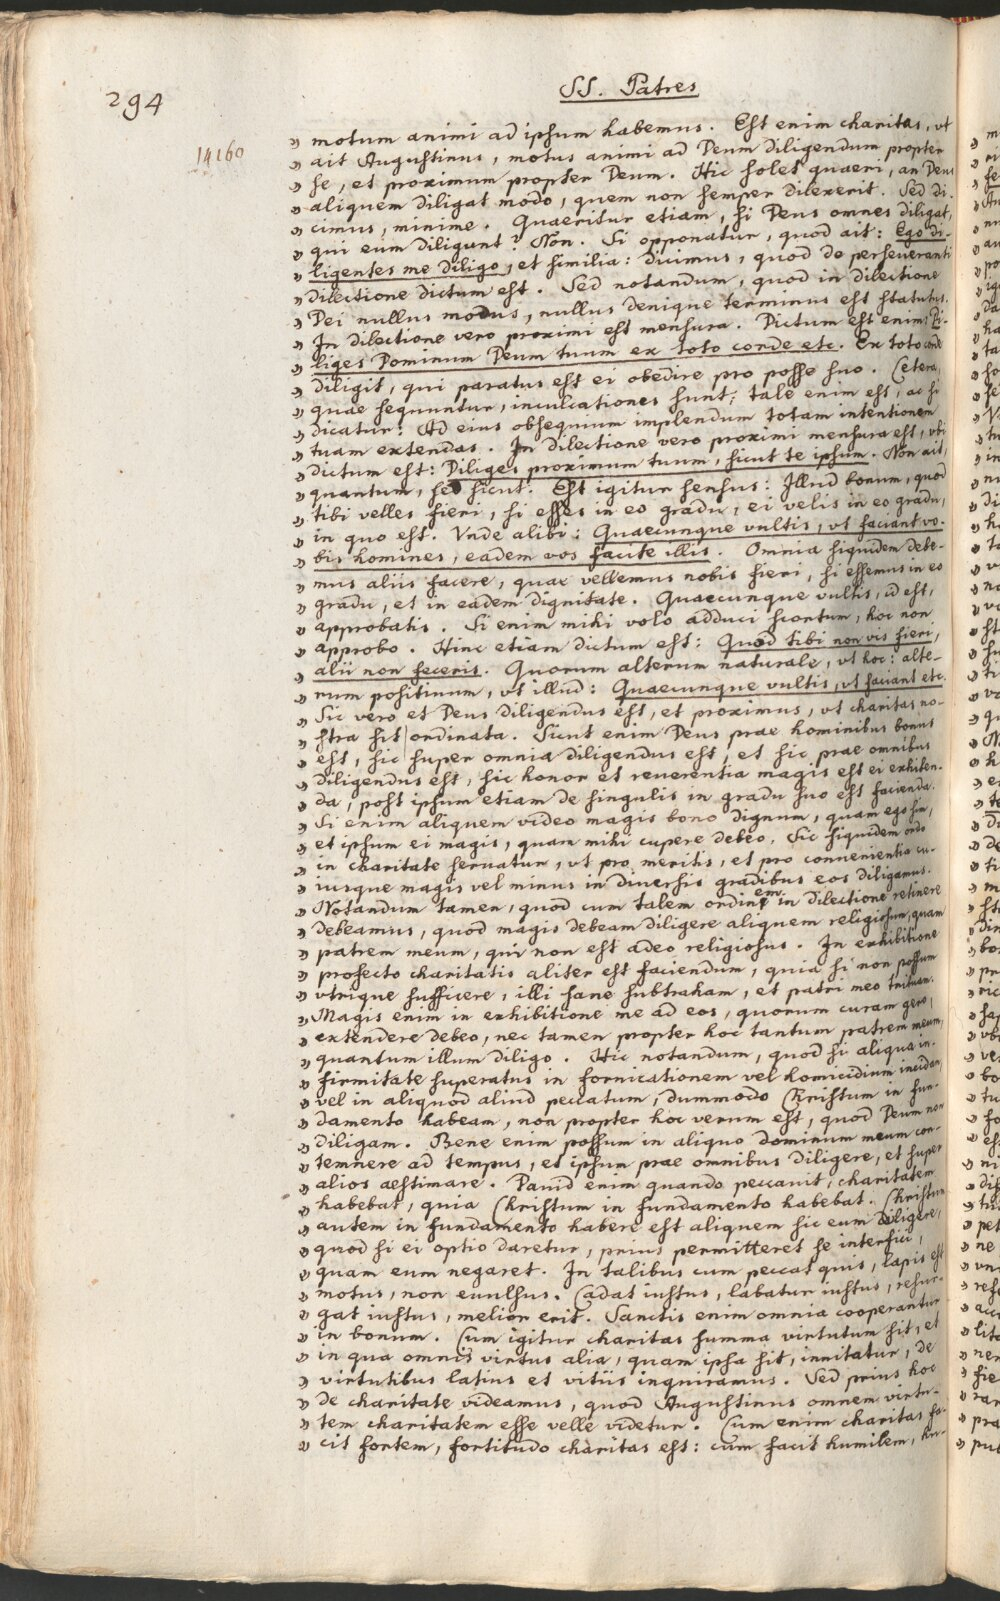 294
SS. Patres
14160
„ motum animi ad ipsum habemus. Est enim charitas, vt
„ ait Augustinus, motus animi ad Deum diligendum propter
„ se, et proximum propter Deum. Hic solet quaeri, an Deus
„ aliquem diligat modo, quem non semper dilexerit. Sed di-
„ cimus, minime. Quaeritur etiam, si Deus omnes diligat,
„ qui eum diligunt? Non. Si opponatur, quod ait: Ego di-
„ ligentes me diligo, et similia: dicimus, quod de perseueranti
„ dilectione dictum est. Sed notandum, quod in dilectione
„ Dei nullus modus, nullus denique terminus est statutus.
„ In dilectione vero proximi est mensura. Dictum est enim: Di-
„ liges Dominum Deum tuum ex toto corde etc. Ex toto corde
„ diligit, qui paratus est ei obedire pro posse suo. Cetera,
„ quae sequuntur, inculcationes sunt; tale enim est, ac si
„ dicatur: Ad eius obsequium implendum totam intentionem
„ tuam extendas. In dilectione vero proximi mensura est, vbi
„ dictum est: Diliges proximum tuum, sicut te ipsum. Non ait,
„ quantum, sed sicut. Est igitur sensus: Illud bonum, quod
„ tibi velles fieri, si esses in eo gradu, ei velis in eo gradu,
„ in quo est. Vnde alibi: Quaecunque vultis, vt faciant vo-
„ bis homines, eadem vos facite illis. Omnia siquidem debe-
„ mus aliis facere, quae vellemus nobis fieri, si essemus in eo
„ gradu, et in eadem dignitate. Quaecunque vultis, id est,
„ approbatis. Si enim mihi volo adduci scortum, hoc non
„ approbo. Hinc etiam dictum est: Quod tibi non vis fieri,
„ alii non feceris. Quorum alterum naturale, vt hoc: alte-
„ rum positiuum, vt illud: Quaecunque vultis, vt faciant etc.
„ Sic vero et Deus diligendus est, et proximus, vt charitas no-
„ stra sit ordinata. Sicut enim Deus prae hominibus bonus
„ est, sic super omnia diligendus est, et sic prae omnibus
„ diligendus est, sic honor et reuerentia magis est ei exhiben-
„ da, post ipsum etiam de singulis in gradu suo est facienda.
„ Si enim aliquem video magis bono dignum, quam ego sim,
„ et ipsum ei magis, quam mihi cupere debeo. Sic siquidem ordo
„ in charitate seruatur, vt pro meritis, et pro conuenientia cu-
„ iusque magis vel minus in diuersis gradibus eos diligamus.
„ Notandum tamen, quod cum talem ordinem in dilectione retinere
„ debeamus, quod magis debeam diligere aliquem religiosum, quam
„ patrem meum, qui non est adeo religiosus. In exhibitione
„ profecto charitatis aliter est faciendum, quia si non possum
„ vtrique sufficere, illi sane subtraham, et patri meo tribuam.
„ Magis enim in exhibitione me ad eos, quorum curam gero,
„ extendere debeo, nec tamen propter hoc tantum patrem meum,
„ quantum illum diligo. Hic notandum, quod si aliqua in-
„ firmitate superatus in fornicationem vel homicidium incidam,
„ vel in aliquod aliud peccatum, dummodo Christum in fun-
„ damento habeam, non propter hoc verum est, quod Deum non
„ diligam. Bene enim possum in aliquo dominum meum con-
„ temnere ad tempus, et ipsum prae omnibus diligere, et super
„ alios aestimare. Dauid enim quando peccauit, charitatem
„ habebat, quia Christum in fundamento habebat. Christum
„ autem in fundamento habere est aliquem sic eum diligere,
„ quod si ei optio daretur, prius permitteret se interfici,
„ quam eum negaret. In talibus cum peccat quis, lapis est
„ motus, non euulsus. Cadat iustus, labatur iustus, resur-
„ gat iustus, melior erit. Sanctis enim omnia cooperantur
„ in bonum. Cum igitur charitas summa virtutum sit, et
„ in qua omnis virtus alia, quam ipsa sit, innitatur, de
„ virtutibus latius et vitiis inquiramus. Sed prius hoc
„ de charitate videamus, quod Augustinus omnem virtu-
„ tem charitatem esse velle videtur. Cum enim charitas fa-
„ cit fortem, fortitudo charitas est: cum facit humilem, hu-